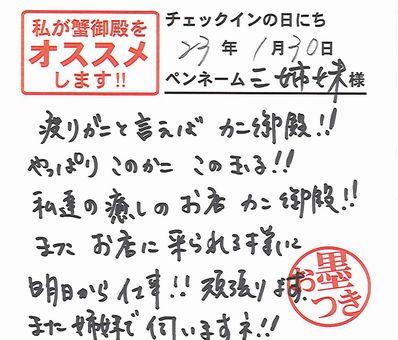 私が蟹御殿を
オススメ
します!!
チェックインの日にち
23年1月30日
ペンネーム 三姉妹様
渡りがにと言えば カニ御殿!!
やっぱり このかに この玉る!!
私達の癒しのお店 カニ御殿!!
また お店に来られる様に
明日から仕事!! 頑張ります。
また姉妹で伺いますネ!!
お墨つき